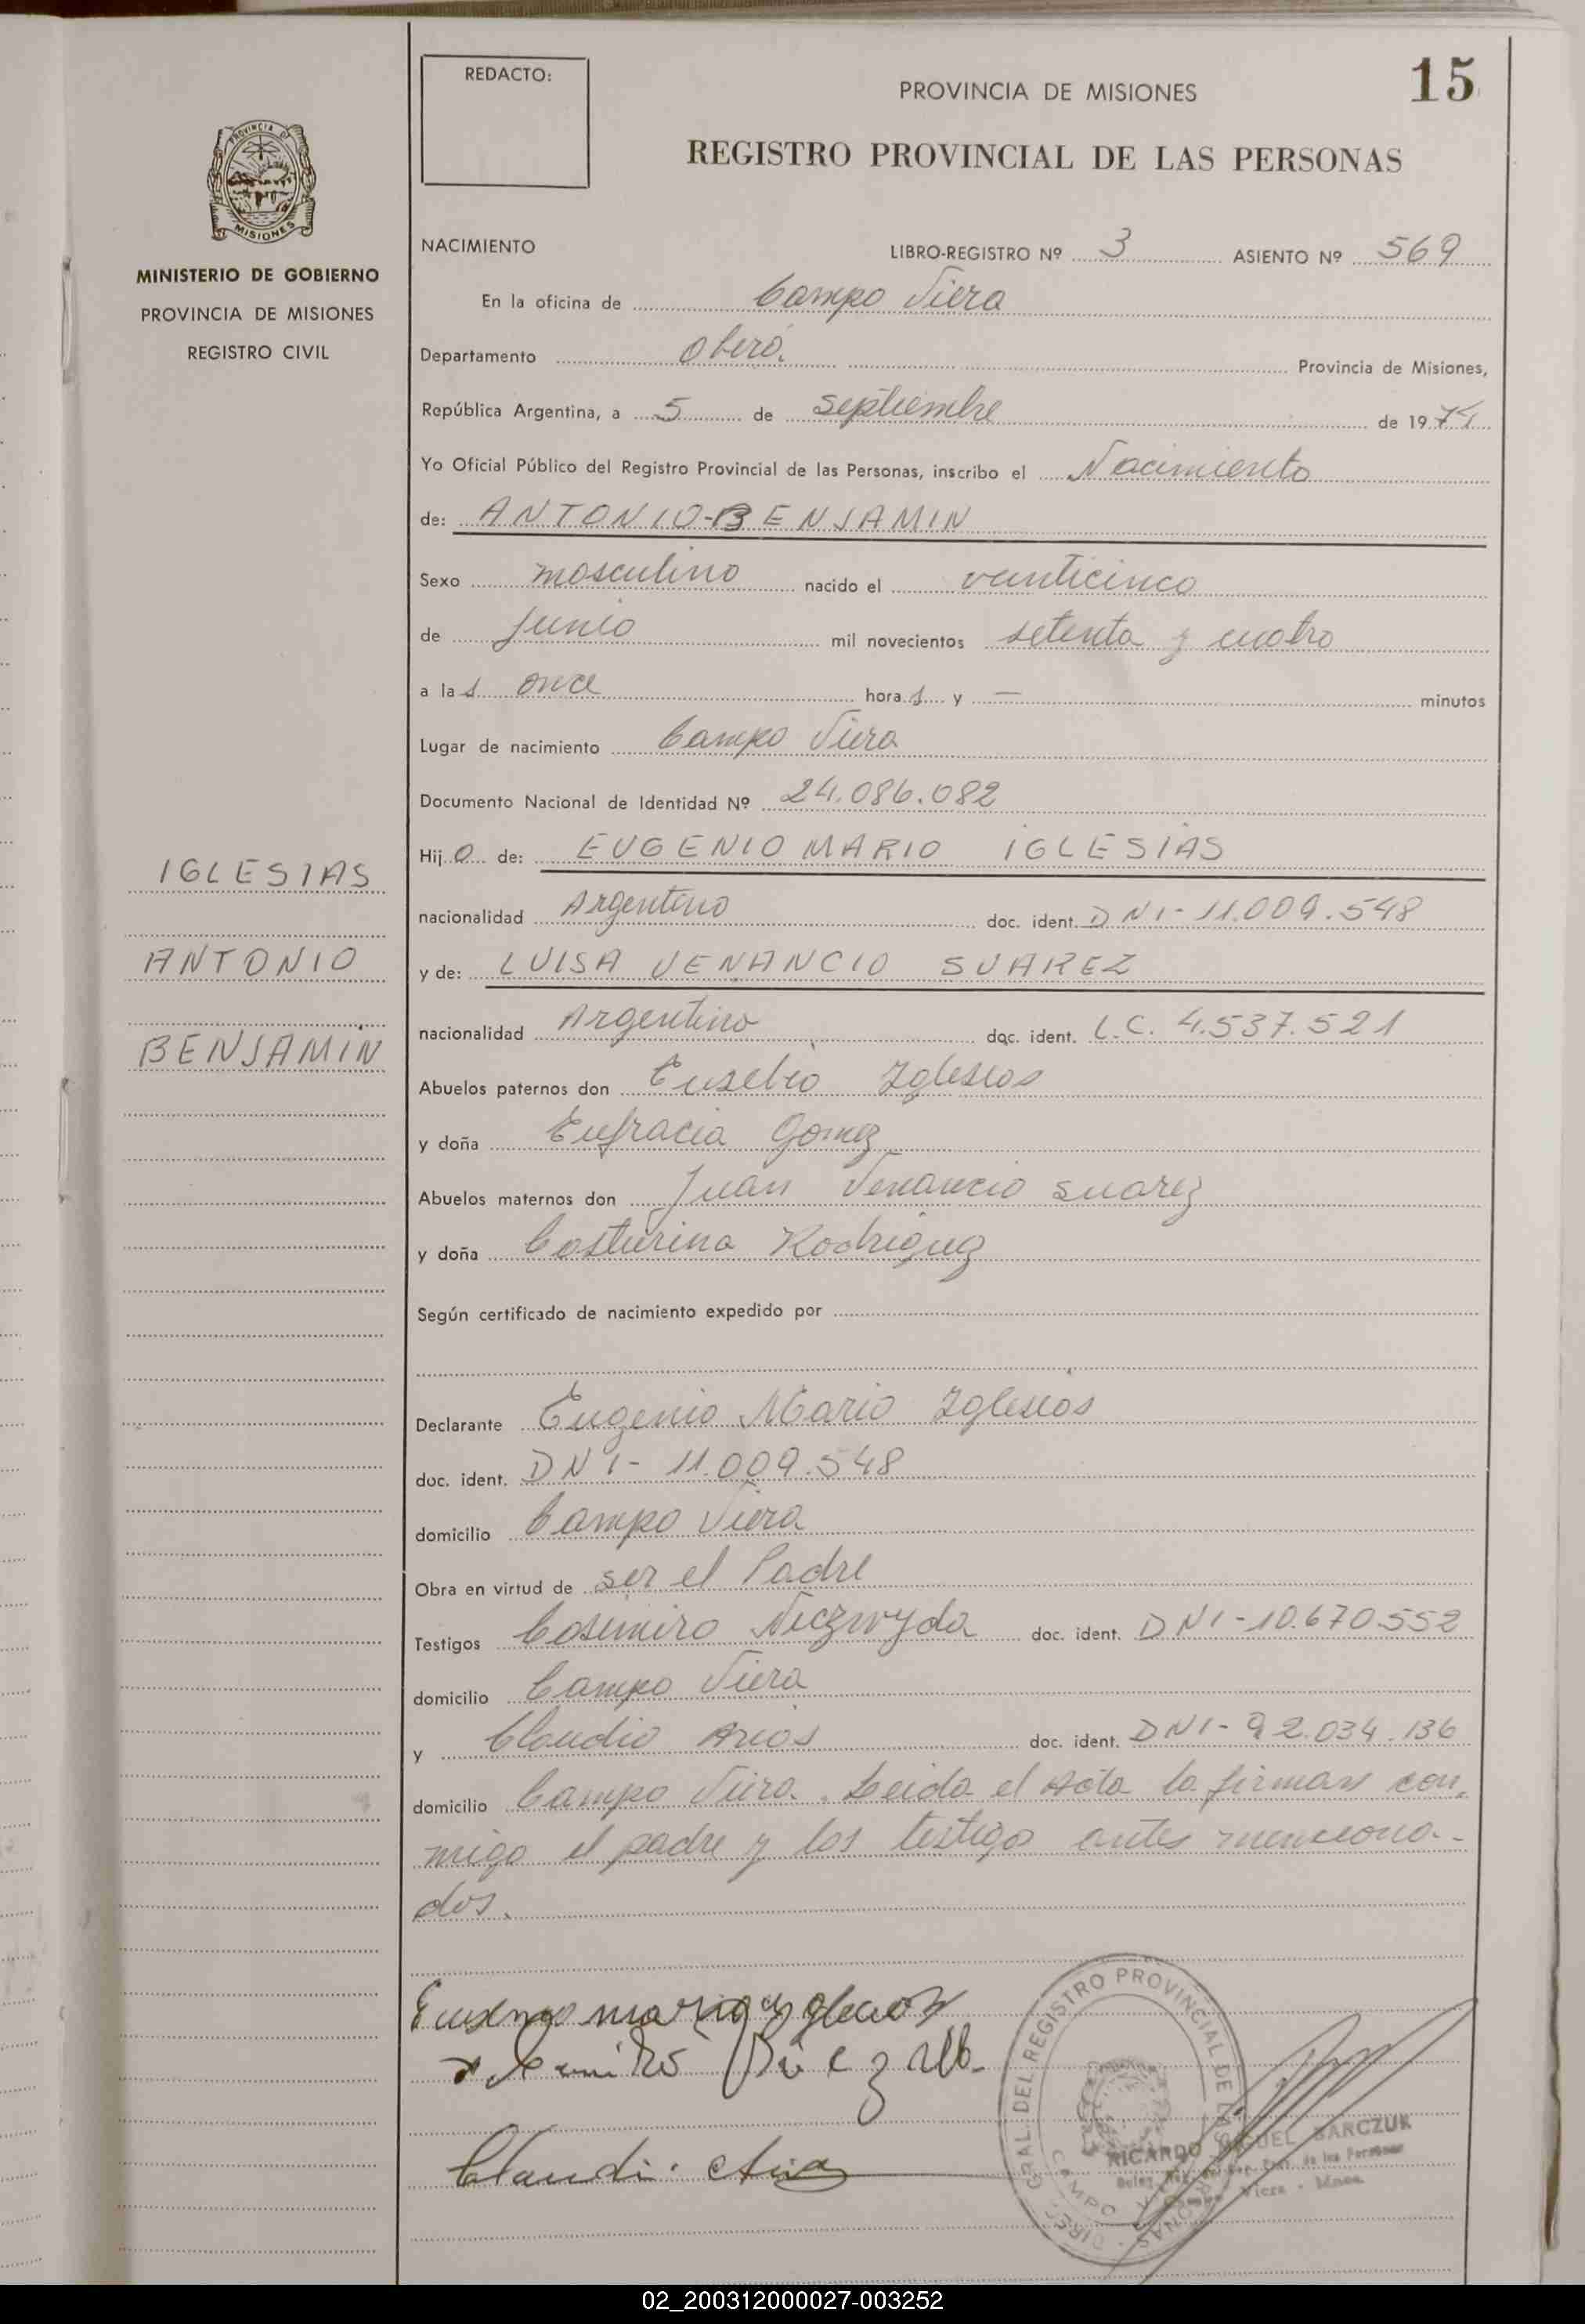 REDACTO:
PROVINCIA DE MISIONES
15
REGISTRO PROVINCIAL DE LAS PERSONAS
PROVINCIA DE
MISIONES
MINISTERIO DE GOBIERNO
PROVINCIA DE MISIONES
REGISTRO CIVIL
NACIMIENTO LIBRO-REGISTRO Nº 3 ASIENTO Nº 569
En la oficina de Campo Viera
Departamento Oberá. Provincia de Misiones,
República Argentina, a 5 de septiembre de 1974
Yo Oficial Público del Registro Provincial de las Personas, inscribo el Nacimiento
de: ANTONIO-BENJAMIN
Sexo masculino nacido el veinticinco
de Junio mil novecientos setenta y cuatro
a las once horas y — minutos
Lugar de nacimiento Campo Viera
Documento Nacional de Identidad Nº 24.086.082
Hijo de: EUGENIO MARIO IGLESIAS
nacionalidad Argentino doc. ident. DNI-11.009.548
y de: LUISA VENANCIO SUAREZ
nacionalidad Argentina doc. ident. L.C. 4.537.521
Abuelos paternos don Eusebio Iglesias
y doña Eufracia Gomez
Abuelos maternos don Juan Venancio Suarez
y doña Rodriguez
Según certificado de nacimiento expedido por
Declarante Eugenio Mario Iglesias
doc. ident. DNI- 11.009.548
domicilio Campo Viera
Obra en virtud de ser el Padre
Testigos Casimiro doc. ident. DNI-10.670.552
domicilio Campo Viera
y Claudio Arias doc. ident. DNI-92.034.136
domicilio Campo Viera. Leida el Acta la firman con-
migo el padre y los testigo antes menciona-
dos.
IGLESIAS
ANTONIO
BENJAMIN
GRAL. DEL REGISTRO PROVINCIAL DE LAS PERSONAS
CAMPO
RICARDO MIGUEL SARCZUK
02_200312000027-003252